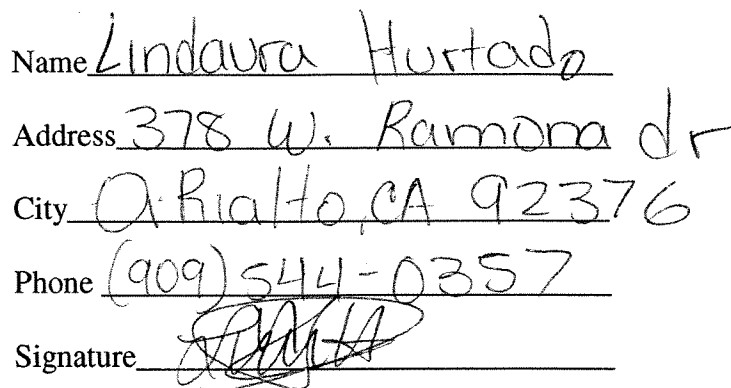 Name Lindaura Hurtado
Address 378 W. Ramona dr
City a. Rialto, CA 92376
Phone (909) 544-0357
Signature